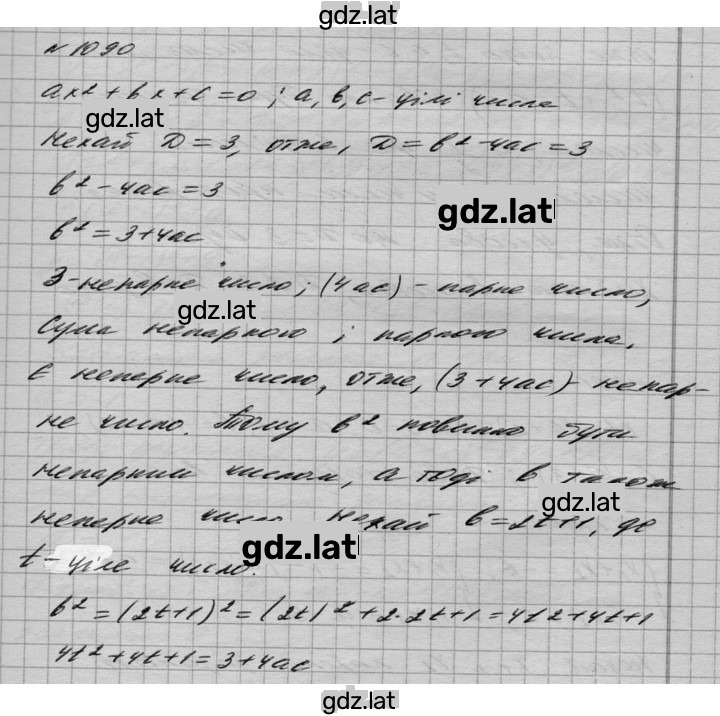 gdz.lat
№ 1090
ax² + bx + c = 0 ; a, b, c - цілі числа
gdz.lat
Нехай D = 3, отже, D = b² - 4ac = 3
b² - 4ac = 3
gdz.lat
b² = 3 + 4ac
3 - непарне число; (4ac) - парне число,
gdz.lat
Сума непарного і парного числа,
є непарне число, отже, (3 + 4ac) - непар-
не число. Тому b² повинно бути
непарним числом, а тоді b також
gdz.lat
непарне число. Нехай b = 2t+1, де
gdz.lat
t - ціле число.
b² = (2t+1)² = (2t)² + 2·2t+1 = 4t² + 4t+1
4t² + 4t + 1 = 3 + 4ac
gdz.lat